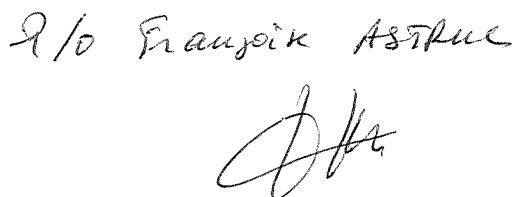 P/o Françoise ASTRUC